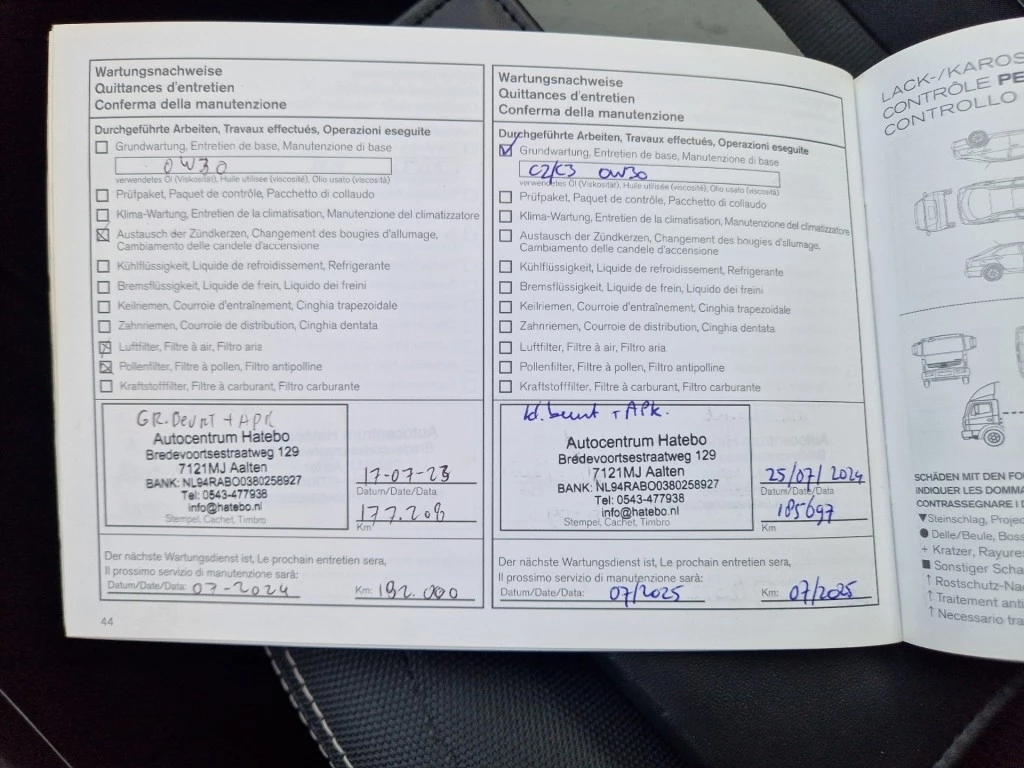 Wartungsnachweise
Quittances d'entretien
Conferma della manutenzione
Durchgeführte Arbeiten, Travaux effectués, Operazioni eseguite
Grundwartung, Entretien de base, Manutenzione di base
0W30
verwendetes Öl (Viskosität), Huile utilisée (viscosité), Olio usato (viscosità)
Prüfpaket, Paquet de contrôle, Pacchetto di collaudo
Klima-Wartung, Entretien de la climatisation, Manutenzione del climatizzatore
Austausch der Zündkerzen, Changement des bougies d'allumage,
Cambiamento delle candele d'accensione
Kühlflüssigkeit, Liquide de refroidissement, Refrigerante
Bremsflüssigkeit, Liquide de frein, Liquido dei freini
Keilriemen, Courroie d'entraînement, Cinghia trapezoidale
Zahnriemen, Courroie de distribution, Cinghia dentata
Luftfilter, Filtre à air, Filtro aria
Pollenfilter, Filtre à pollen, Filtro antipolline
Kraftstofffilter, Filtre à carburant, Filtro carburante
GR. Beurt + APK
Autocentrum Hatebo
Bredevoortsestraatweg 129
7121MJ Aalten
BANK: NL94RABO0380258927
Tel: 0543-477938
info@hatebo.nl
Stempel, Cachet, Timbro
17-07-23
Datum/Date/Data
177.208
Km
Der nächste Wartungsdienst ist, Le prochain entretien sera,
Il prossimo servizio di manutenzione sarà:
Datum/Date/Data: 07-2024 Km: 192.000
44
Wartungsnachweise
Quittances d'entretien
Conferma della manutenzione
Durchgeführte Arbeiten, Travaux effectués, Operazioni eseguite
Grundwartung, Entretien de base, Manutenzione di base
C2/C3 0W30
verwendetes Öl (Viskosität), Huile utilisée (viscosité), Olio usato (viscosità)
Prüfpaket, Paquet de contrôle, Pacchetto di collaudo
Klima-Wartung, Entretien de la climatisation, Manutenzione del climatizzatore
Austausch der Zündkerzen, Changement des bougies d'allumage,
Cambiamento delle candele d'accensione
Kühlflüssigkeit, Liquide de refroidissement, Refrigerante
Bremsflüssigkeit, Liquide de frein, Liquido dei freini
Keilriemen, Courroie d'entraînement, Cinghia trapezoidale
Zahnriemen, Courroie de distribution, Cinghia dentata
Luftfilter, Filtre à air, Filtro aria
Pollenfilter, Filtre à pollen, Filtro antipolline
Kraftstofffilter, Filtre à carburant, Filtro carburante
kl. beurt + APK.
Autocentrum Hatebo
Bredevoortsestraatweg 129
7121MJ Aalten
BANK: NL94RABO0380258927
Tel: 0543-477938
info@hatebo.nl
Stempel, Cachet, Timbro
25/07/2024
Datum/Date/Data
185697
Km
Der nächste Wartungsdienst ist, Le prochain entretien sera,
Il prossimo servizio di manutenzione sarà:
Datum/Date/Data: 07/2025 Km: 07/2025
LACK-/KAROS
CONTRÔLE PE
CONTROLLO
SCHÄDEN MIT DEN FO
INDIQUER LES DOMMA
CONTRASSEGNARE I D
▼Steinschlag, Projec
● Delle/Beule, Boss
+ Kratzer, Rayures
■ Sonstiger Scha
↑ Rostschutz-Na
↑ Traitement anti
↑ Necessario tra